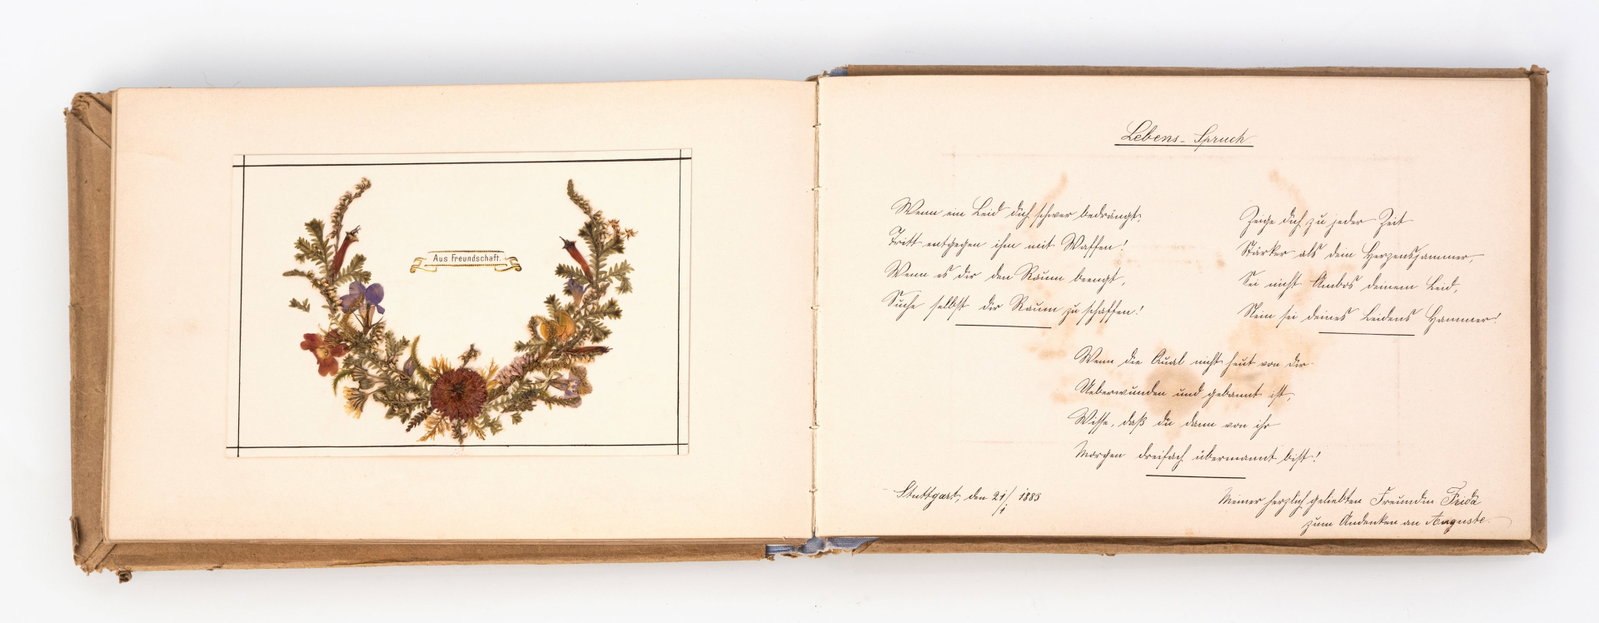 Aus Freundschaft.
Lebens-Spruch
Wenn ein Leid dich schwer bedrängt,
Tritt entgegen ihm mit Waffen!
Wenn es dir den Raum beengt,
Suche selbst dir Raum zu schaffen!
Zeige dich zu jeder Zeit
Stärker als dein Herzensjammer,
Sei nicht Ambos deinem Leid,
Nein sei deines Leidens Hammer!
Wenn die Qual nicht heut von dir
Ueberwunden und gebannt ist,
Wisse, daß du dann von ihr
Morgen dreifach übermannt bist!
Stuttgart, den 21/1 1885
Meiner herzlich geliebten Freundin Frida
zum Andenken an Auguste.